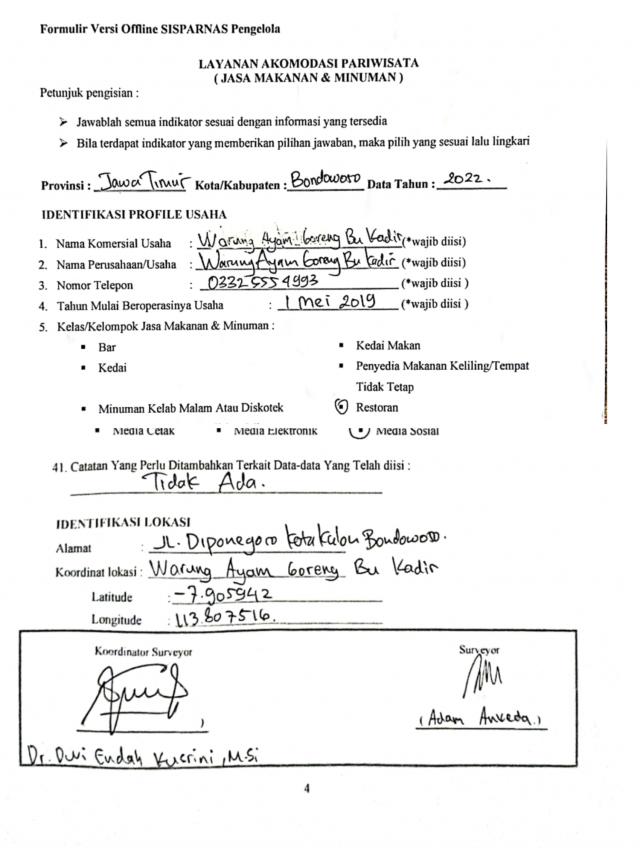 Formulir Versi Offline SISPARNAS Pengelola
LAYANAN AKOMODASI PARIWISATA
( JASA MAKANAN & MINUMAN )
Petunjuk pengisian :
➢ Jawablah semua indikator sesuai dengan informasi yang tersedia
➢ Bila terdapat indikator yang memberikan pilihan jawaban, maka pilih yang sesuai lalu lingkari
Provinsi : Jawa Timur Kota/Kabupaten : Bondowoso Data Tahun : 2022.
IDENTIFIKASI PROFILE USAHA
1. Nama Komersial Usaha : Warung Ayam Goreng Bu Kadir (*wajib diisi)
2. Nama Perusahaan/Usaha : Warung Ayam Goreng Bu Kadir (*wajib diisi)
3. Nomor Telepon : 03325554993 (*wajib diisi )
4. Tahun Mulai Beroperasinya Usaha : 1 Mei 2019 (*wajib diisi )
5. Kelas/Kelompok Jasa Makanan & Minuman :
▪ Bar ▪ Kedai Makan
▪ Kedai ▪ Penyedia Makanan Keliling/Tempat
Tidak Tetap
▪ Minuman Kelab Malam Atau Diskotek ▪ Restoran
▪ Media Cetak ▪ Media Elektronik ▪ Media Sosial
41. Catatan Yang Perlu Ditambahkan Terkait Data-data Yang Telah diisi :
Tidak Ada.
IDENTIFIKASI LOKASI
Alamat : JL. Diponegoro Kotakulon Bondowoso.
Koordinat lokasi : Warung Ayam Goreng Bu Kadir
Latitude : -7.905942
Longitude : 113.807516.
Koordinator Surveyor Surveyor
( Adam )
Dr. Dwi Endah , M.Si
4